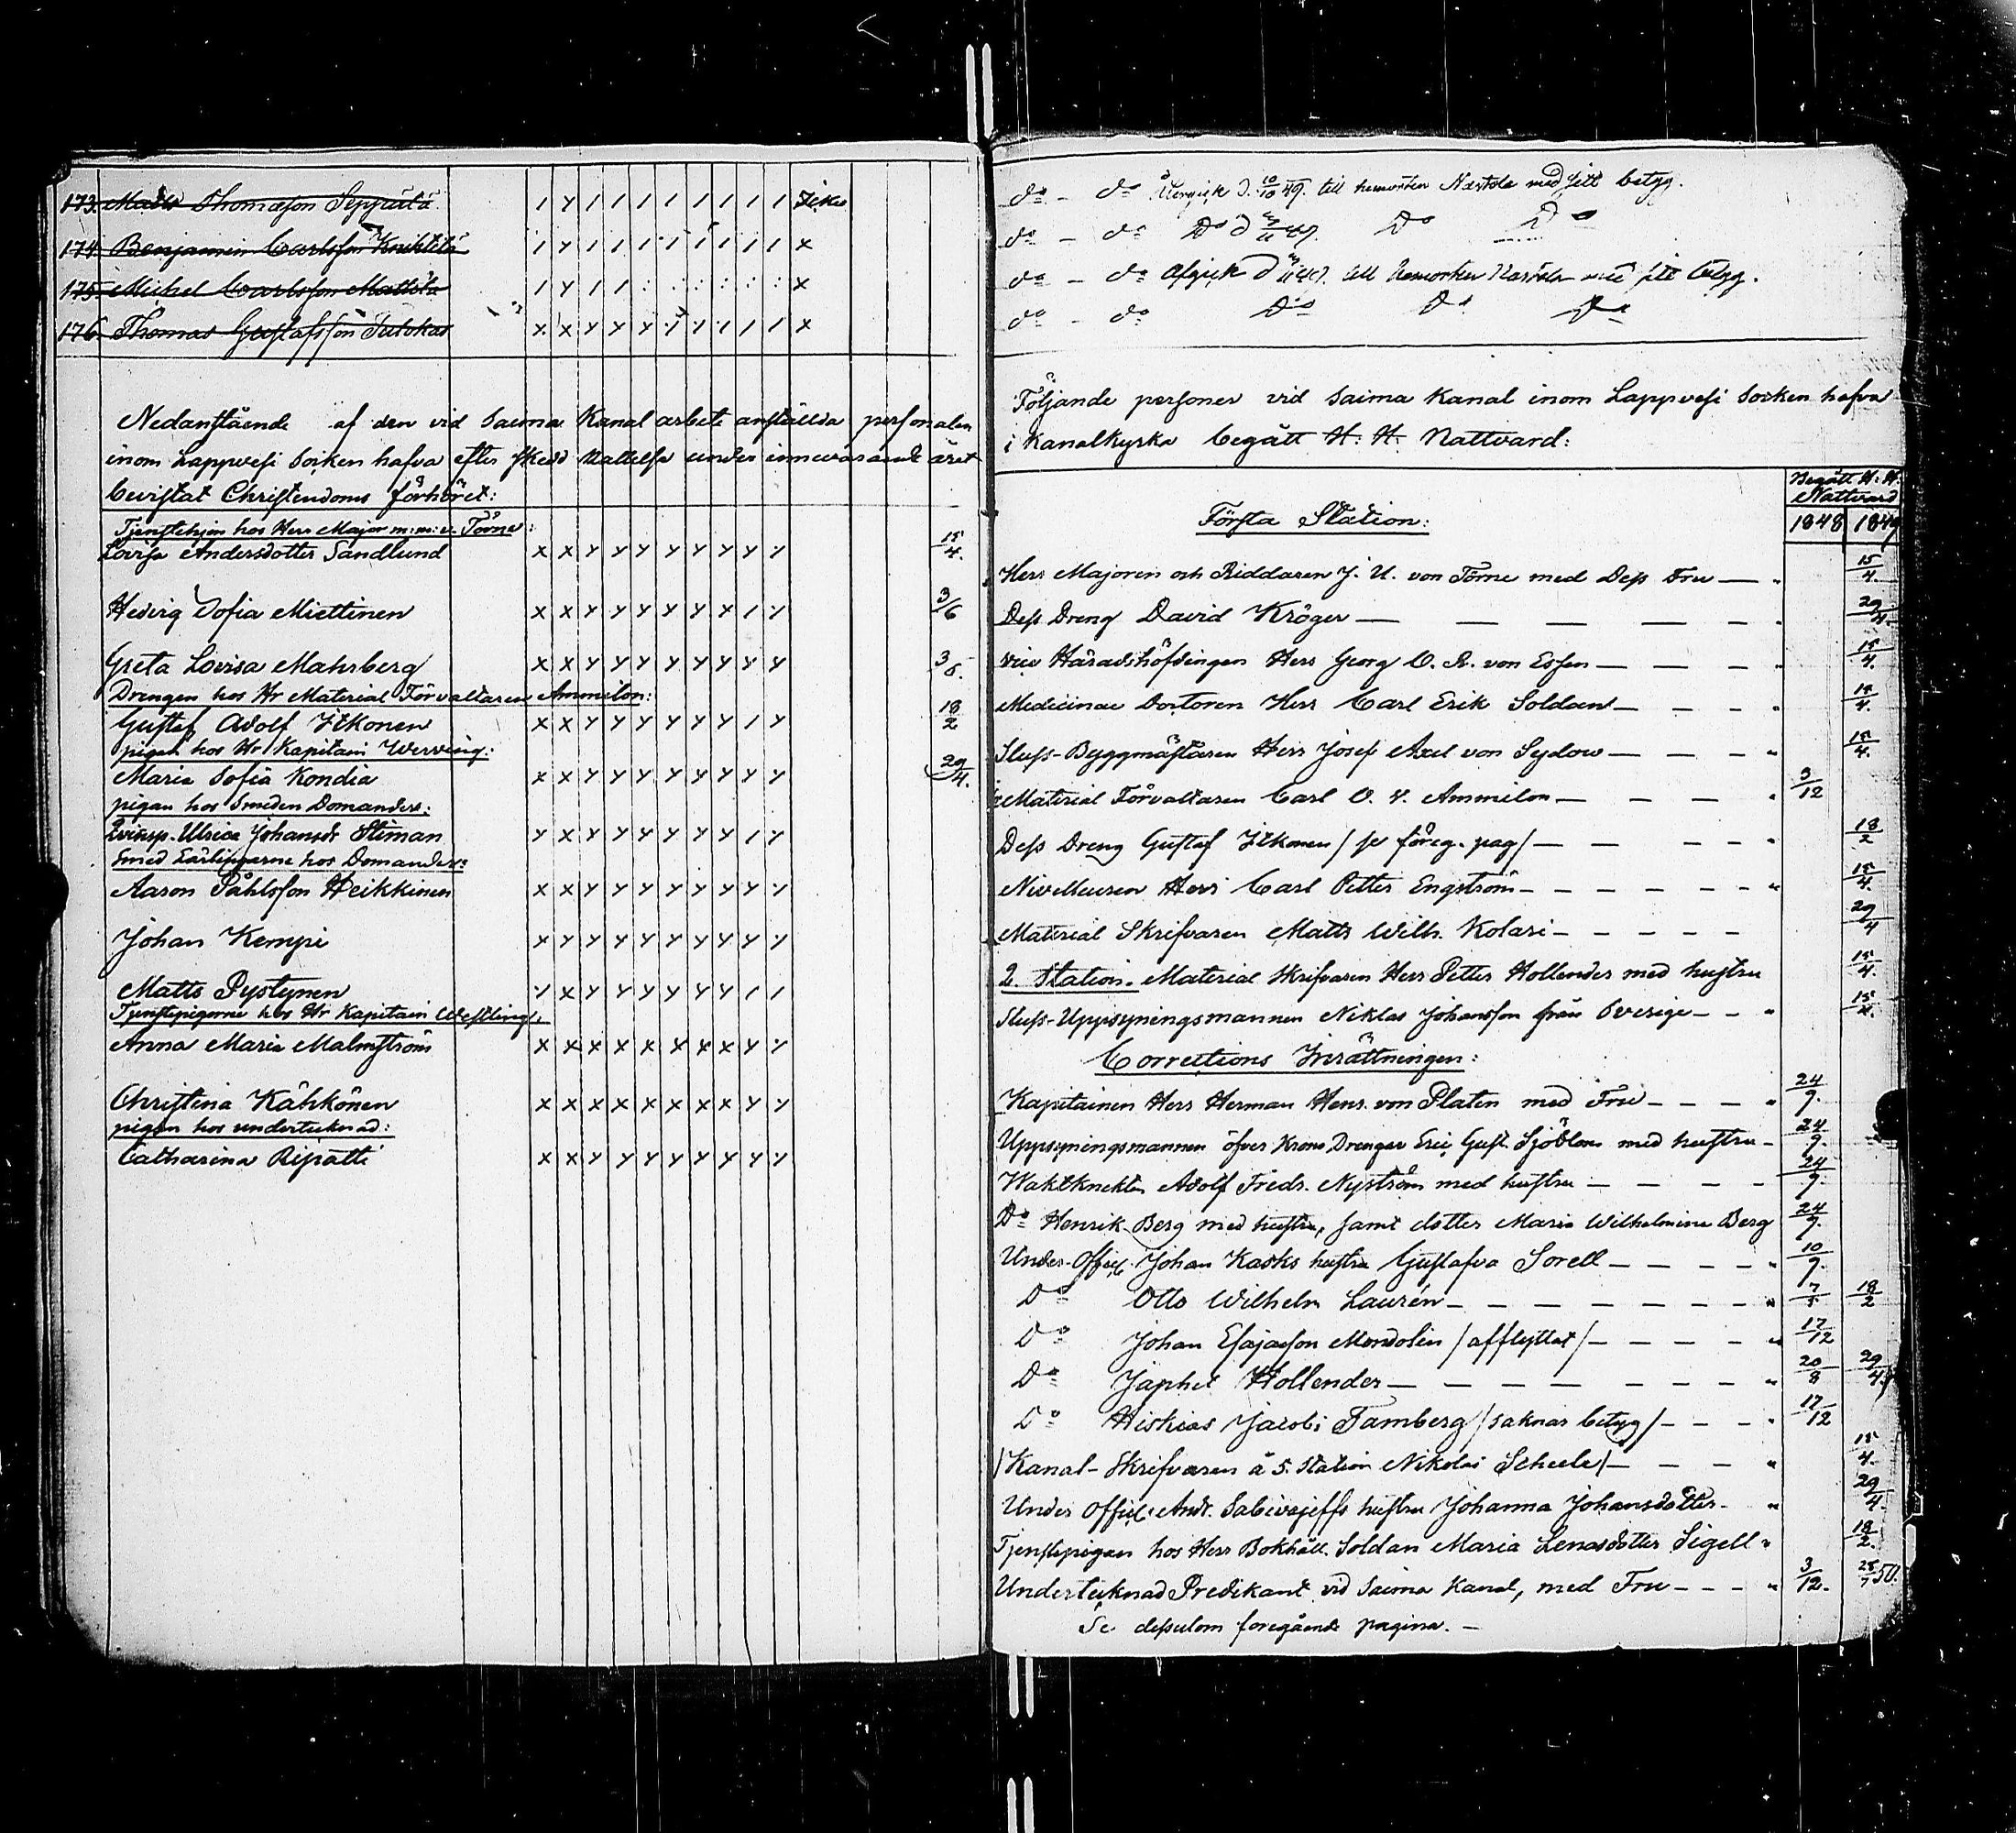 173. Matts Thomasson Seppälä
174. Benjamin Carlsson Knihtilä
175. Michel Carlsson Mattila
176. Thomas Gustafsson Tulokas
Nedanstående af den vid Saima Kanal arbete anstälda personalen
inom Lappvesi Socken hafva efter skedd kallelse under innevarande året
bevistat Christendoms förhöret:
Tjenstehjon hos Herr Major m:m: v. Törne:
Lovisa Andersdotter Sandlund 15/4.
Hedvig Sofia Miettinen 3/6
Greta Lovisa Mahrberg 3/6.
Drengen hos Hr Material Förvaltaren Ammelon:
Gustaf Adolf Itkonen 18/2
pigan hos Hr Kapitain Werving:
Maria Sofia Kondia 29/4.
pigan hos Smeden Domander:
Ulrica Johansdr Stiman
Smed Lärlingarne hos Domander:
Aaron Påhlsson Heikkinen
Johan Kempi
Matts Pystynen
Tjenstepigorne hos Hr Kapitain Westling:
Anna Maria Malmström
Christina Kähkönen
pigan hos undertecknad:
Catharina Ripatti
do - do Afgick d. 10/10 49. till hemorten Nastola med sitt betyg.
do - do Do d 3/11 49. Do Do
do - do Afgick d 3/11 49. till hemorten Nastola med sitt betyg.
do - do Do Do Do
Följande personer vid Saima Kanal inom Lappvesi Socken hafva
i Kanalkyrka begått H. H. Nattvard:
Begått H. H.
Nattvard
Första Station: 1848 1849
Herr Majoren och Riddaren J. U. von Törne med Dess Fru — " 15/4.
Dess Dreng David Kröger — — — — - " 29/4.
vice Häradshöfdingen Herr Georg O. R. von Essen — — — " 15/4.
Medicinae Doctoren Herr Carl Erik Soldan — - - " 15/4.
Sluss-Byggmästaren Herr Josef Axel von Sydow — — — " 15/4.
Material Förvaltaren Carl O. V. Ammelon — — — — " 3/12
Dess Dreng Gustaf Itkonen /se föreg. pag/ — — — - - " 18/2
Nivelleuren Herr Carl Petter Engström - - - - - - " 15/4.
Material Skrifvaren Matts Wilh. Kolari - - - - - 29/4
2. Station. Material Skrifvaren Herr Petter Hollender med hustru 15/4.
Sluss-Uppsyningsmannen Niklas Johansson från Sverige - - " 15/4.
Corrections Inrättningen:
Kapitainen Herr Herman Henr. von Platen med Fru - - - " 24/9.
Uppsyningsmannen öfver Krono Drengar Eric Gust. Sjöblom med hustru - 24/9.
Waktknekten Adolf Fredr. Nyström med hustru — - - - 24/9.
Do Henrik Berg med hustru, samt dotter Maria Wilhelmina Berg 24/9.
Under-Offic. Johan Kasks hustru Gustafva Sorell - - - - " 10/9.
Do Otto Wilhelm Laurén - - - - - - - " 7/5 18/2
Do Johan Esajasson Mondolin /afflyttat/ - - - - " 17/12
Do Japhet Hollender — — — — - - - " 20/8 29/4.
Do Hiskias Jacobs Tamberg /saknar betyg/ - - - " 17/12
/Kanal-Skrifvaren å 5. Station Nikolai Scheele/ - - - " 15/4.
Under Offic. Andr. hustru Johanna Johansdotter - " 29/4.
Tjenstepigan hos Herr Bokhåll. Soldan Maria Lenasdotter Sigell " 18/2.
Undertecknad Predikant vid Saima Kanal, med Fru - - - " 3/12. 25/7 50.
Se dessutom foregående pagina. -